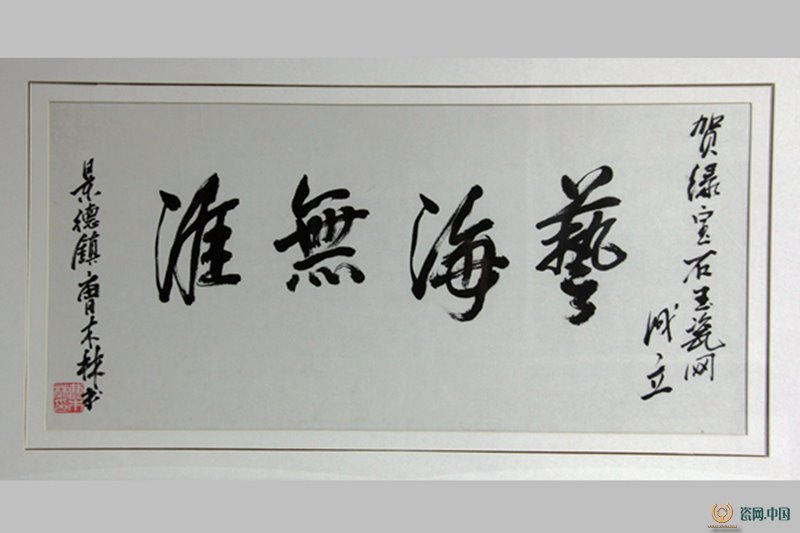 贺绿宝石玉瓷网
成立
藝海無涯
景德鎮曹木林书
瓷网.中国